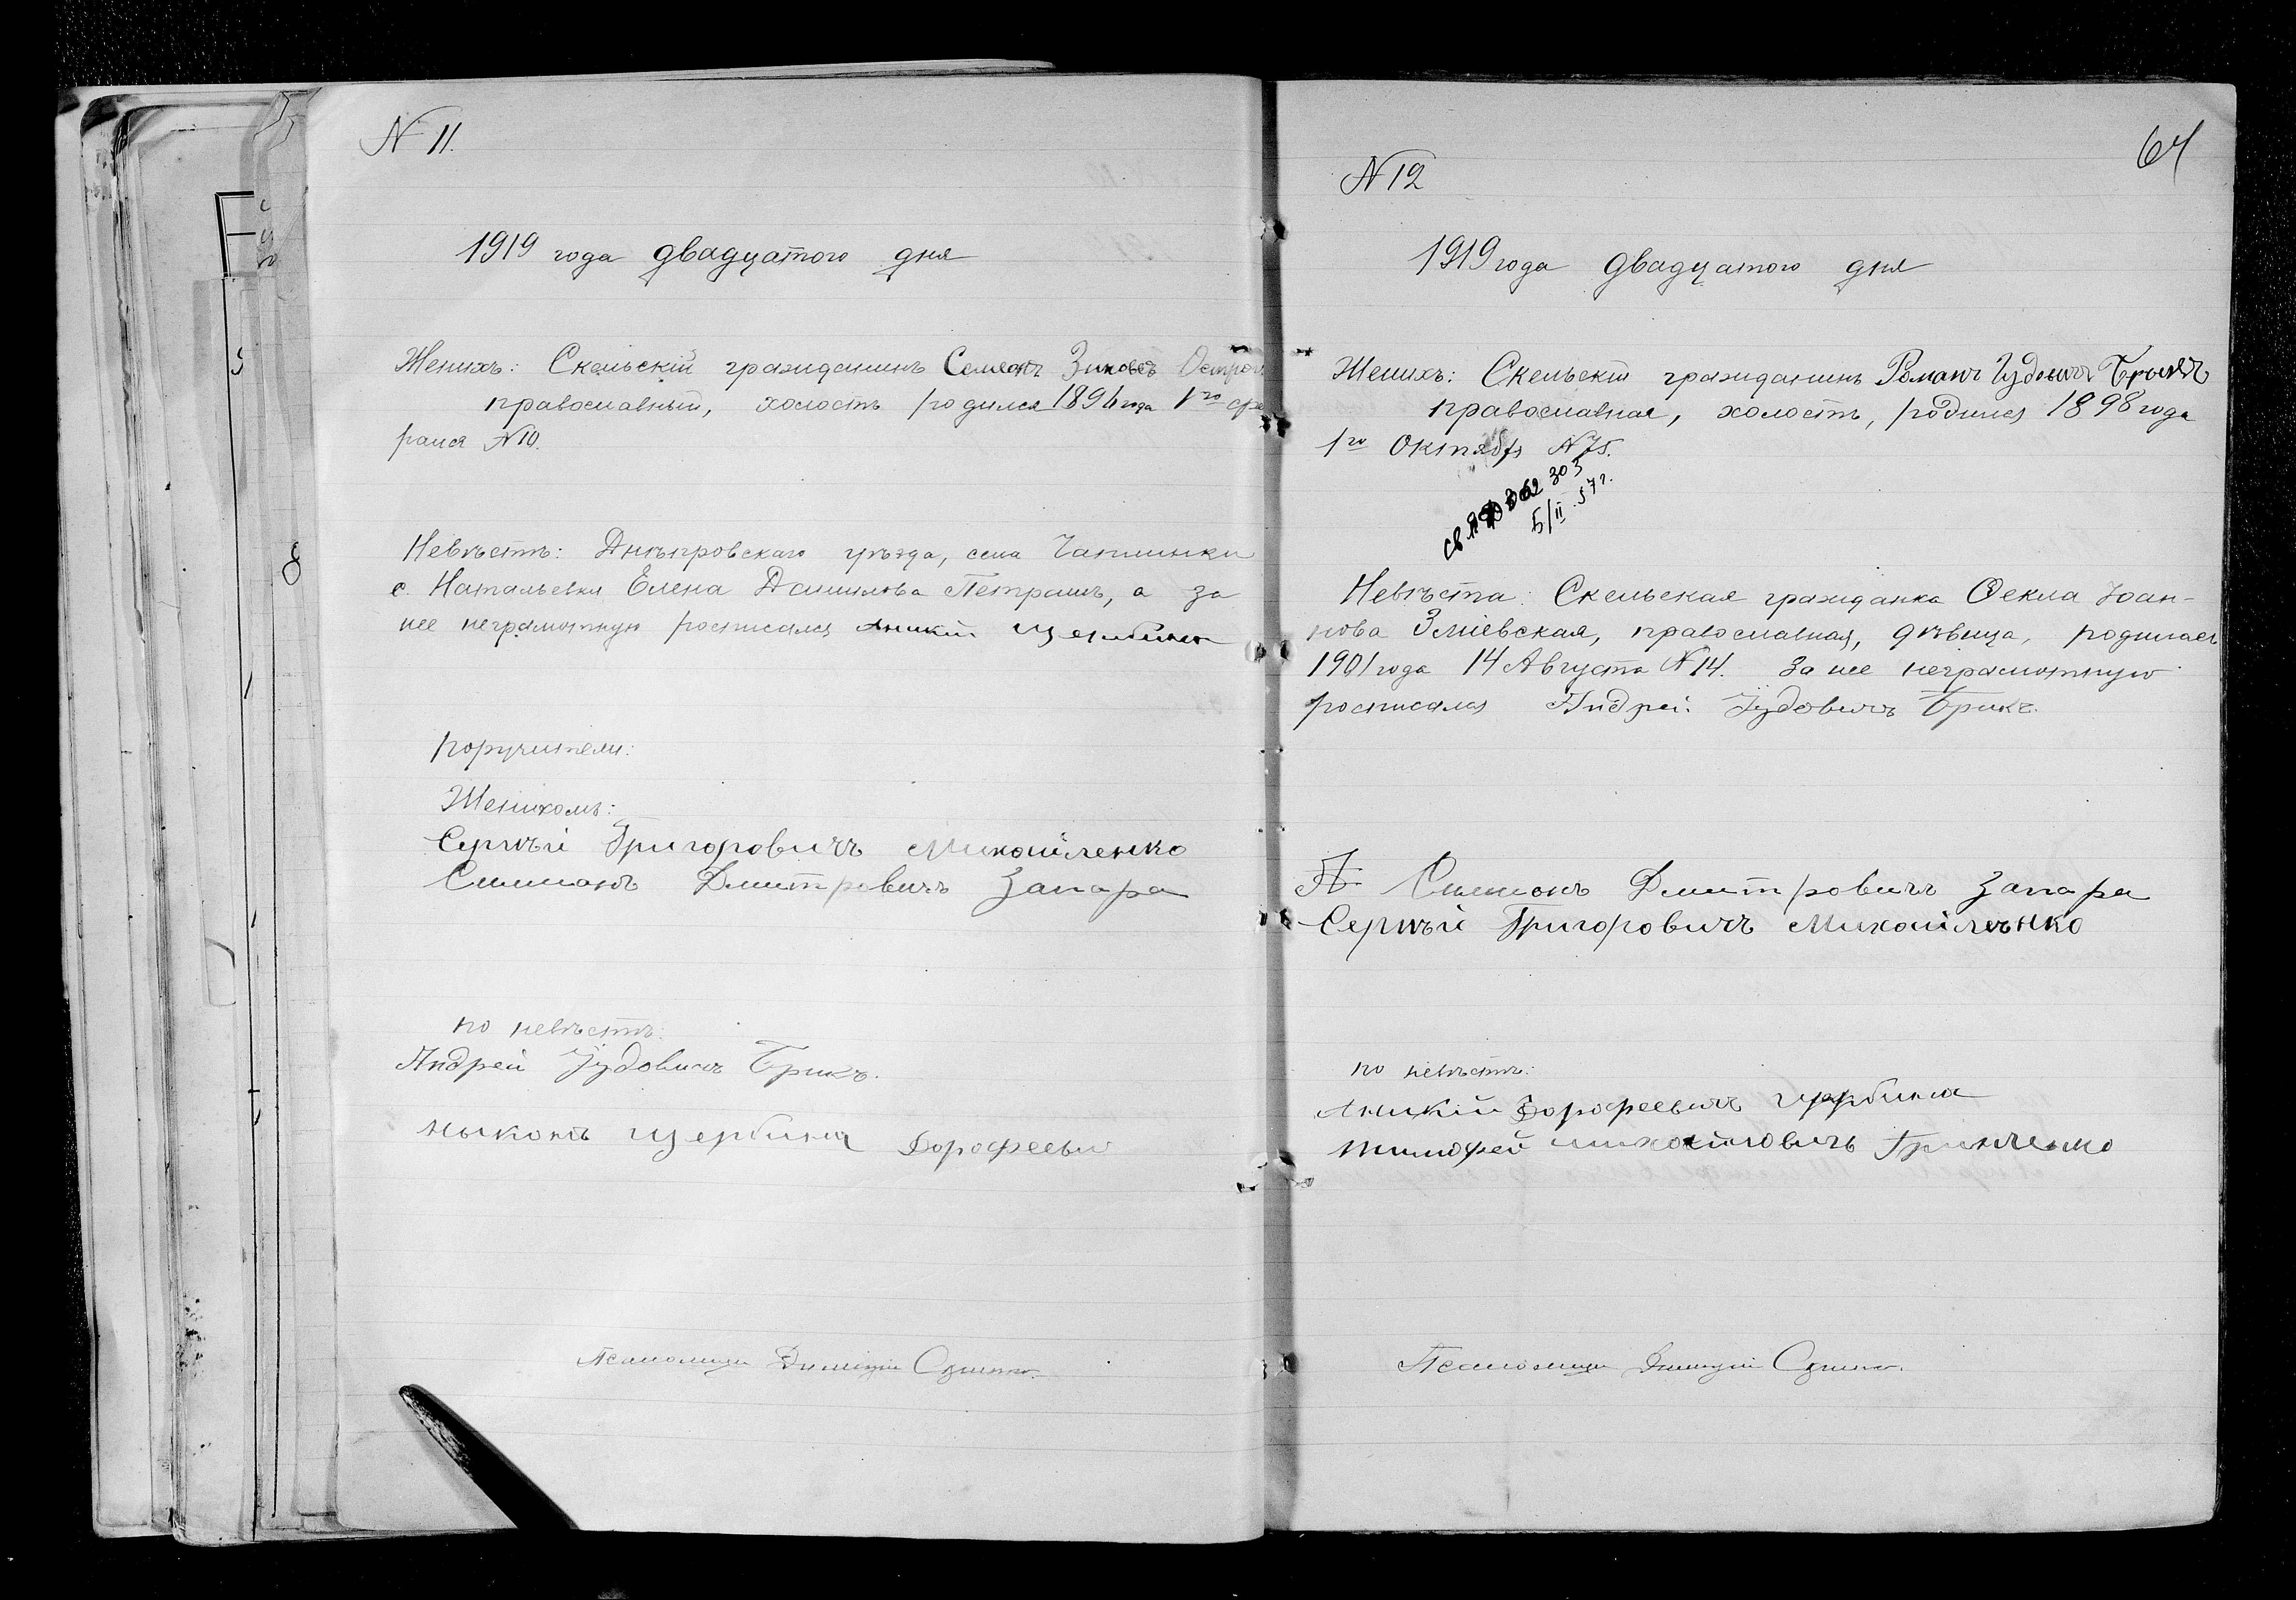 N 11.
1919 года двадцатого дня
Женихъ: Скельскій гражданинъ Семенъ
православный, холостъ родился 1894 года 1го
раля N10.
Невѣстъ: Днѣпровскаго уѣзда, села Чаплинки
с. Натальевки Елена Данилова Петрашъ, а за
нее неграмотную росписался Аникій Щербина
поручители:
Женихомъ:
Сергѣй Григоровичъ Михайленко
Симионъ Дмитровичъ Запара
по невѣстѣ:
Андрей Іудовичъ Брикъ.
Щербина Дорофеевы
Псаломщи Димитрій
64
N 12
1919 года двадцатого дня
Женихъ: Скельскій гражданинъ Романъ Іудовичъ Брикъ
православная, холостъ, родился 1898 года
1го Октября N75.
303
5/II.57 г.
Невѣста: Скельская гражданка Ѳекла Іоан-
нова Зміевская, православная, дѣвица, родилась
1901 года 14 Августа N14. За нее неграмотную
росписался Андрей Іудовичъ Брикъ.
Симионъ Дмитровичъ Запара
Сергѣй Григоровичъ Михайленко
по невѣстѣ:
Аникій Дорофеевичъ Щербина
Тимофей Михайловичъ Гринченко
Псаломщи Димитрій